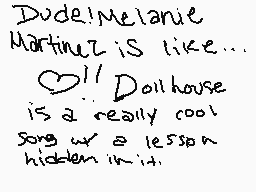 Dude! Melanie
Martinez is like...
♡!! Dollhouse
is a really cool
song w/ a lesson
hidden in it.